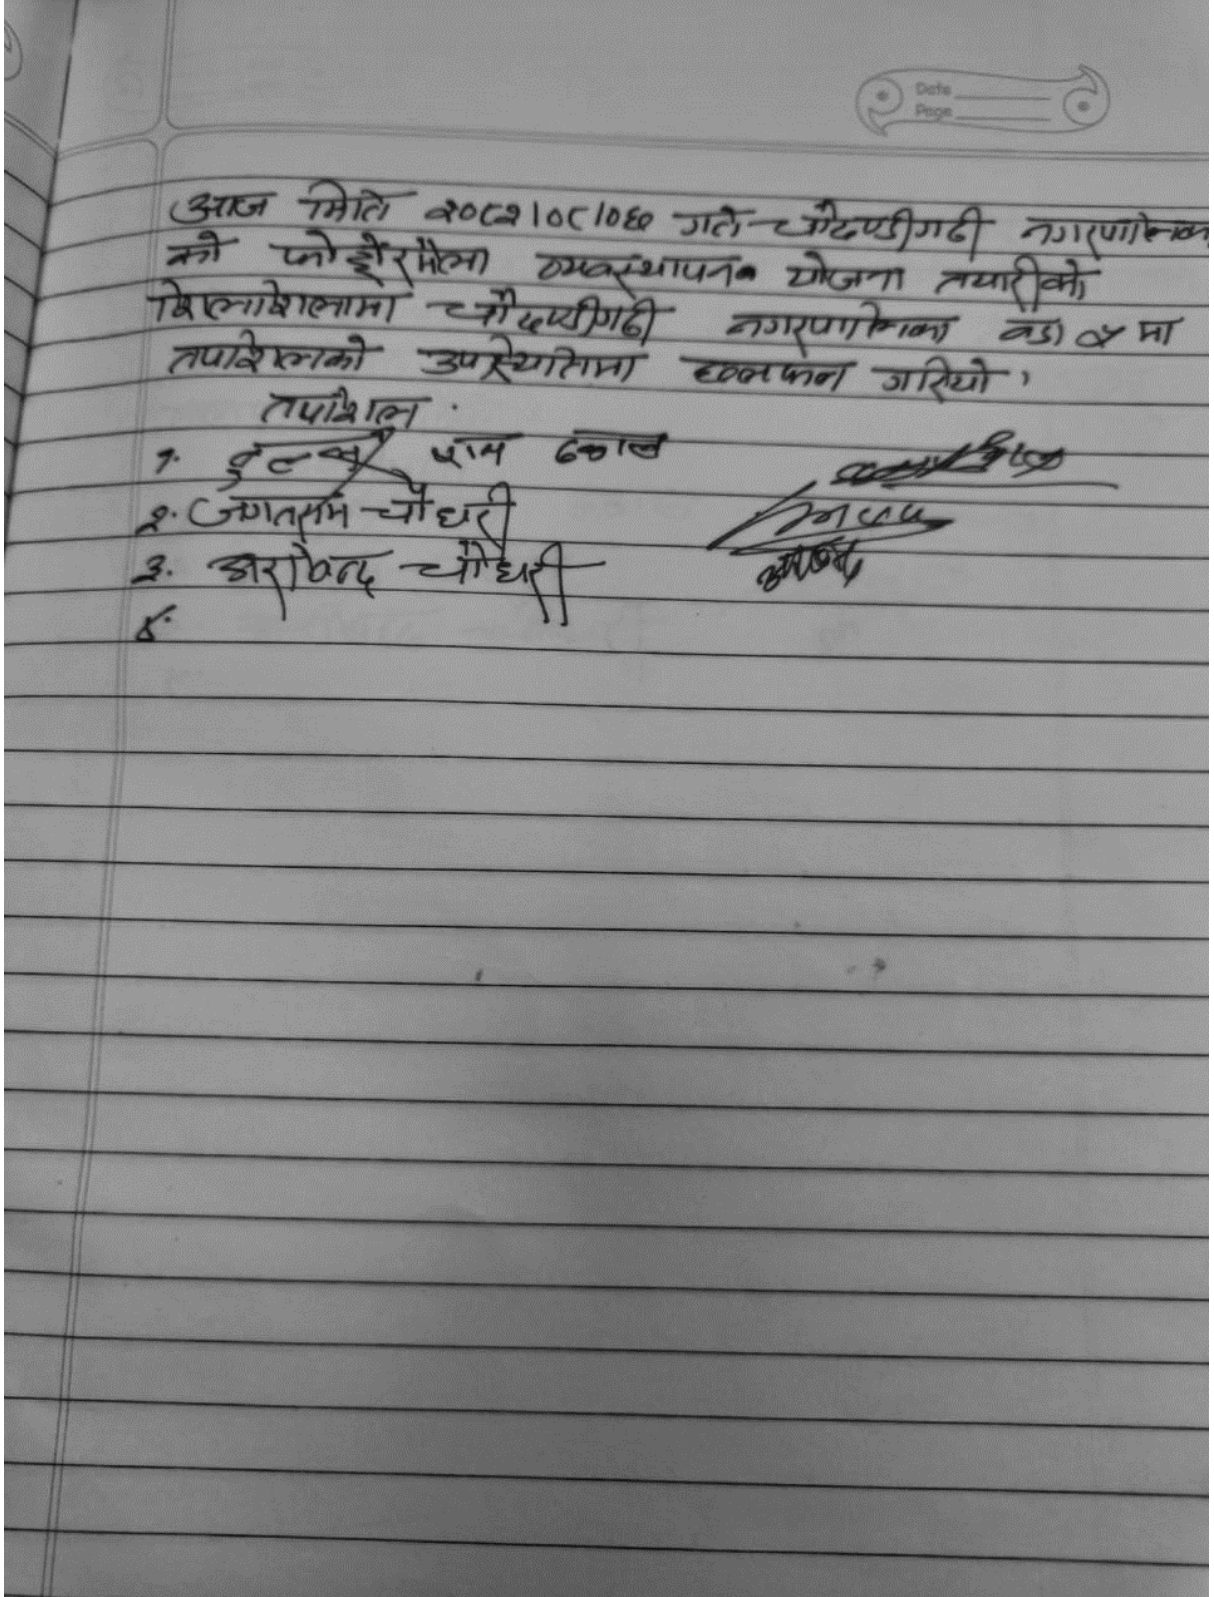 Date
Page
आज मिति २०८२।०८।०६ गते चौदण्डीगढी नगरपालिका
को फोहोरमैला व्यवस्थापन योजना तयारीको
शिलशिलामा चौदण्डीगढी नगरपालिका वडा ५ मा
तपशिलको उपस्थितिमा छलफल गरियो ।
तपशिल
१. राम
२. जगतराम चौधरी
३. अरविन्द चौधरी
४.